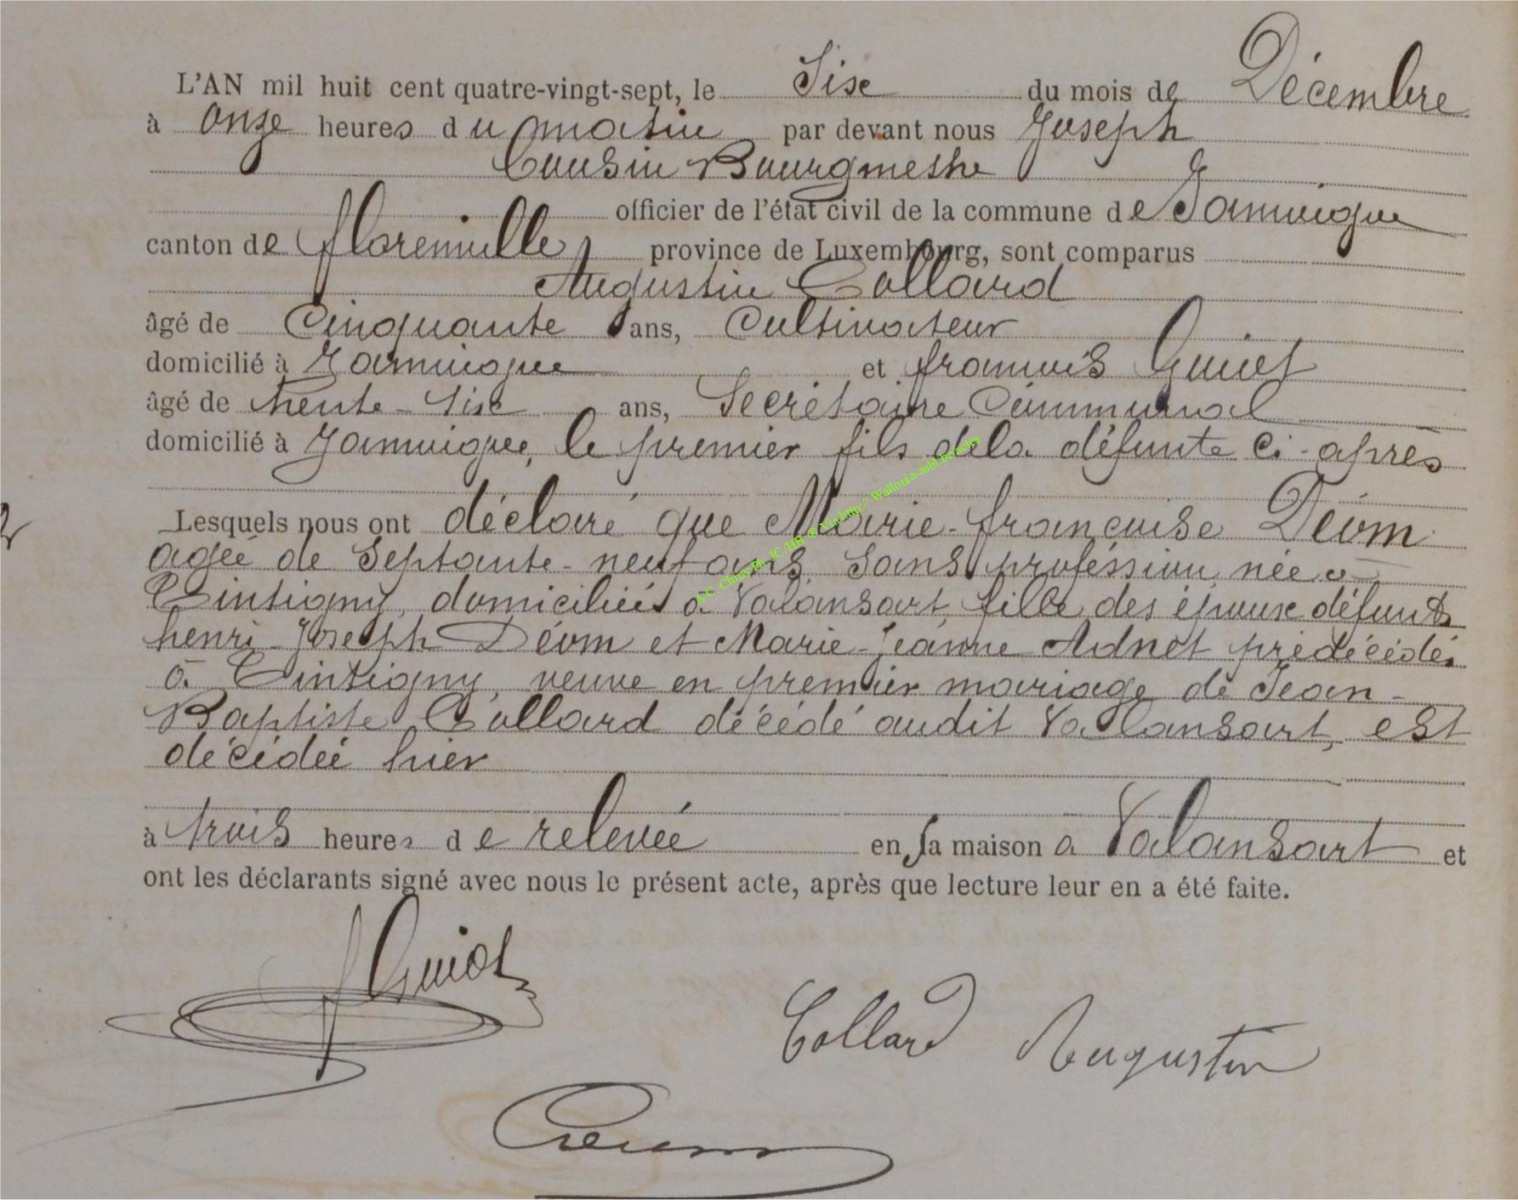 L'AN mil huit cent quatre-vingt-sept, le Six du mois de Décembre
à onze heures du matin par devant nous Joseph
Cousin Bourgmestre
officier de l'état civil de la commune de Jamoigne
canton de florenville, province de Luxembourg, sont comparus
Augustin Collard
âgé de Cinquante ans, Cultivateur
domicilié à Jamoigne et françois Guiot
âgé de trente-Six ans, Secrétaire Communal
domicilié à Jamoigne, le premier fils dela défunte ci-après
Lesquels nous ont déclaré que Marie-françoise Déom
agée de Septante-neuf ans, Sans proféssion, née à
Tintigny, domiciliée à Valansart, fille des époux défunts
henri-Joseph Déom et Marie-Jeanne Adnet prédécédés
à Tintigny, veuve en premier mariage de Jean-
Baptiste Collard décédé audit Valansart, est
décédée hier
à trois heures de relevée en sa maison à Valansart et
ont les déclarants signé avec nous le présent acte, après que lecture leur en a été faite.
Guiot
Collard Augustin